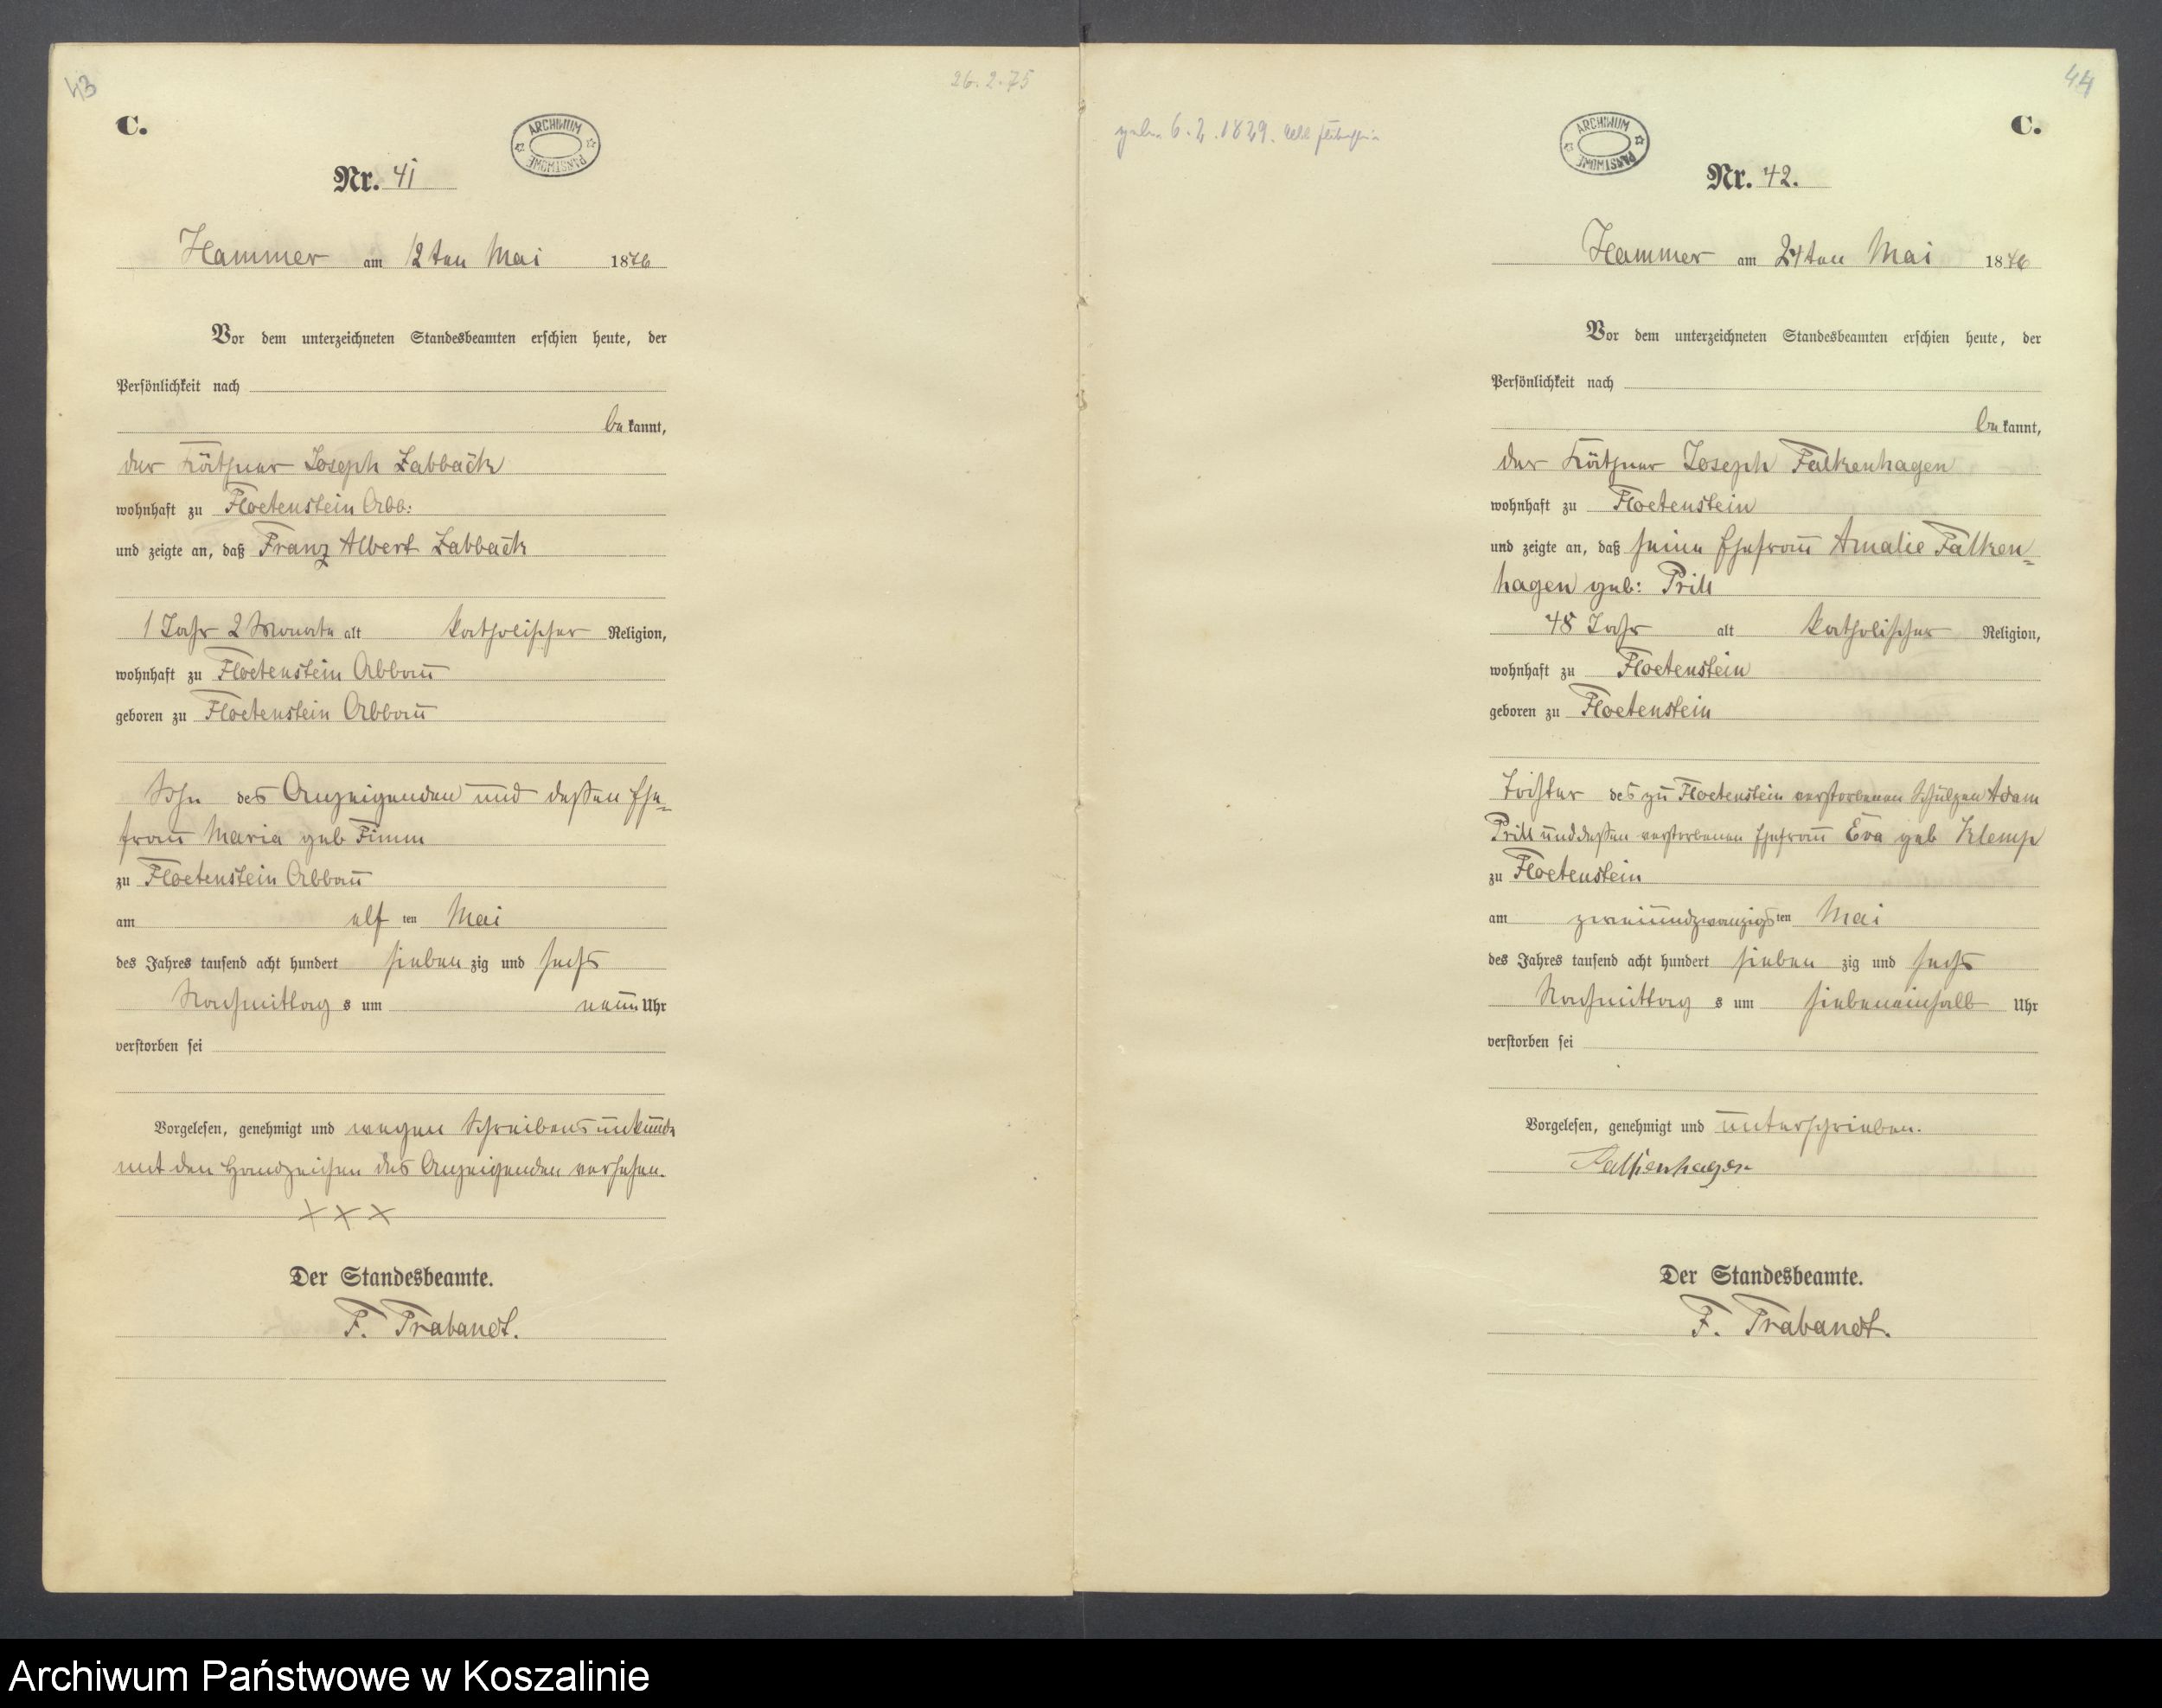 43
26.2.75
C.
ARCHIWUM PAŃSTWOWE
Nr. 41
Hammer am 12ten Mai 1876
Vor dem unterzeichneten Standesbeamten erschien heute, der
Persönlichkeit nach
be kannt,
der Käthner Joseph Zabback
wohnhaft zu Floetenstein Abb:
und zeigte an, daß Franz Albert Zabback
1 Jahr 2 Monate alt katholischer Religion,
wohnhaft zu Floetenstein Abbau
geboren zu Floetenstein Abbau
Sohn des Anzeigenden und deßen Ehe-
frau Maria geb Fimm
zu Floetenstein Abbau
am elf ten Mai
des Jahres tausend acht hundert sieben zig und sechs
Nachmittag s um neun Uhr
verstorben sei
Vorgelesen, genehmigt und wegen Schreibensunkunde
mit den Handzeichen des Anzeigenden versehen.
XXX
Der Standesbeamte.
F. Trabandt.
44
geb. 6.2.1829.
C.
ARCHIWUM PAŃSTWOWE
Nr. 42.
Hammer am 24ten Mai 1876
Vor dem unterzeichneten Standesbeamten erschien heute, der
Persönlichkeit nach
be kannt,
der Käthner Joseph Falkenhagen
wohnhaft zu Floetenstein
und zeigte an, daß seine Ehefrau Amalie Falken-
hagen geb: Prill
48 Jahr alt katholischer Religion,
wohnhaft zu Floetenstein
geboren zu Floetenstein
Tochter des zu Floetenstein verstorbenen Schulzen Adam
Prill und deßen verstorbenen Ehefrau Eva geb Klemp
zu Floetenstein
am zweiundzwanzigs ten Mai
des Jahres tausend acht hundert sieben zig und sechs
Nachmittag s um siebeneinhalb Uhr
verstorben sei
Vorgelesen, genehmigt und unterschrieben.
Falkenhagen
Der Standesbeamte.
F. Trabandt.
Archiwum Państwowe w Koszalinie